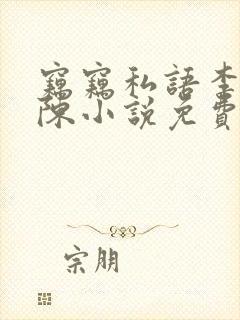 竊竊私語李
陳小說免費
宗朋